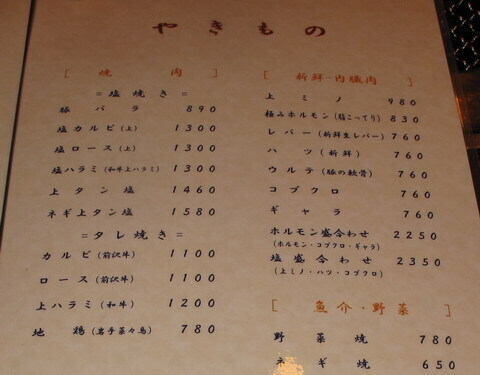 やきもの
[ 焼 肉 ]
= 塩 焼 き =
豚 バ ラ 890
塩カルビ(上) 1300
塩ロース(上) 1300
塩ハラミ(和牛上ハラミ) 1300
上タン塩 1460
ネギ上タン塩 1580
= タ レ 焼 き =
カルビ(前沢牛) 1100
ロース(前沢牛) 1100
上ハラミ(和牛) 1200
地 鶏(岩手菜々鳥) 780
[ 新鮮-内臓肉 ]
上ミノ 980
極みホルモン(脂こってり) 830
レバー(新鮮生レバー) 760
ハツ(新鮮) 760
ウルテ(豚の軟骨) 760
コブクロ 760
ギャラ 760
ホルモン盛合わせ 2250
(ホルモン・コブクロ・ギャラ)
塩盛合わせ 2350
(上ミノ・ハツ・コブクロ)
[ 魚介・野菜 ]
野菜焼 780
ネギ焼 650